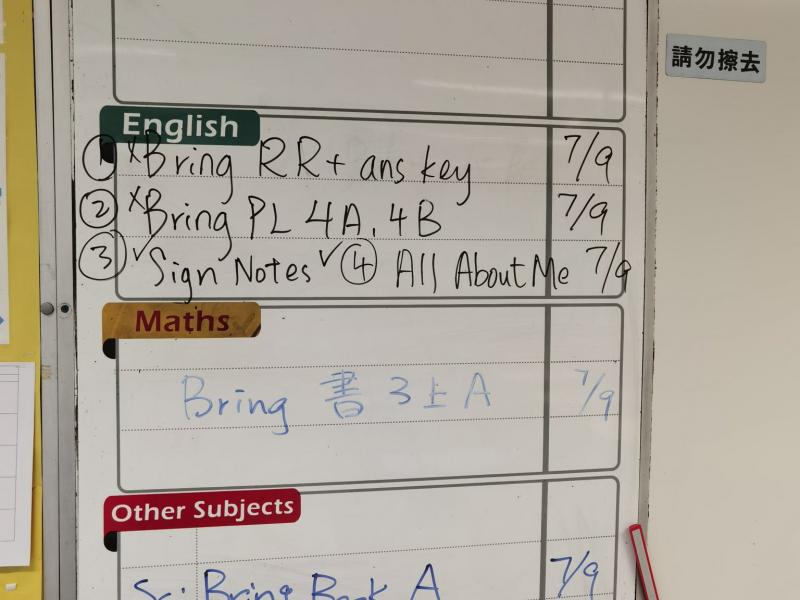 請勿擦去
English
① xBring RR + ans key 7/9
② xBring PL 4A, 4B 7/9
③ ✓Sign Notes ✓④ All About Me 7/9
Maths
Bring 書 3上A 7/9
Other Subjects
Sc: Bring Book A 7/9